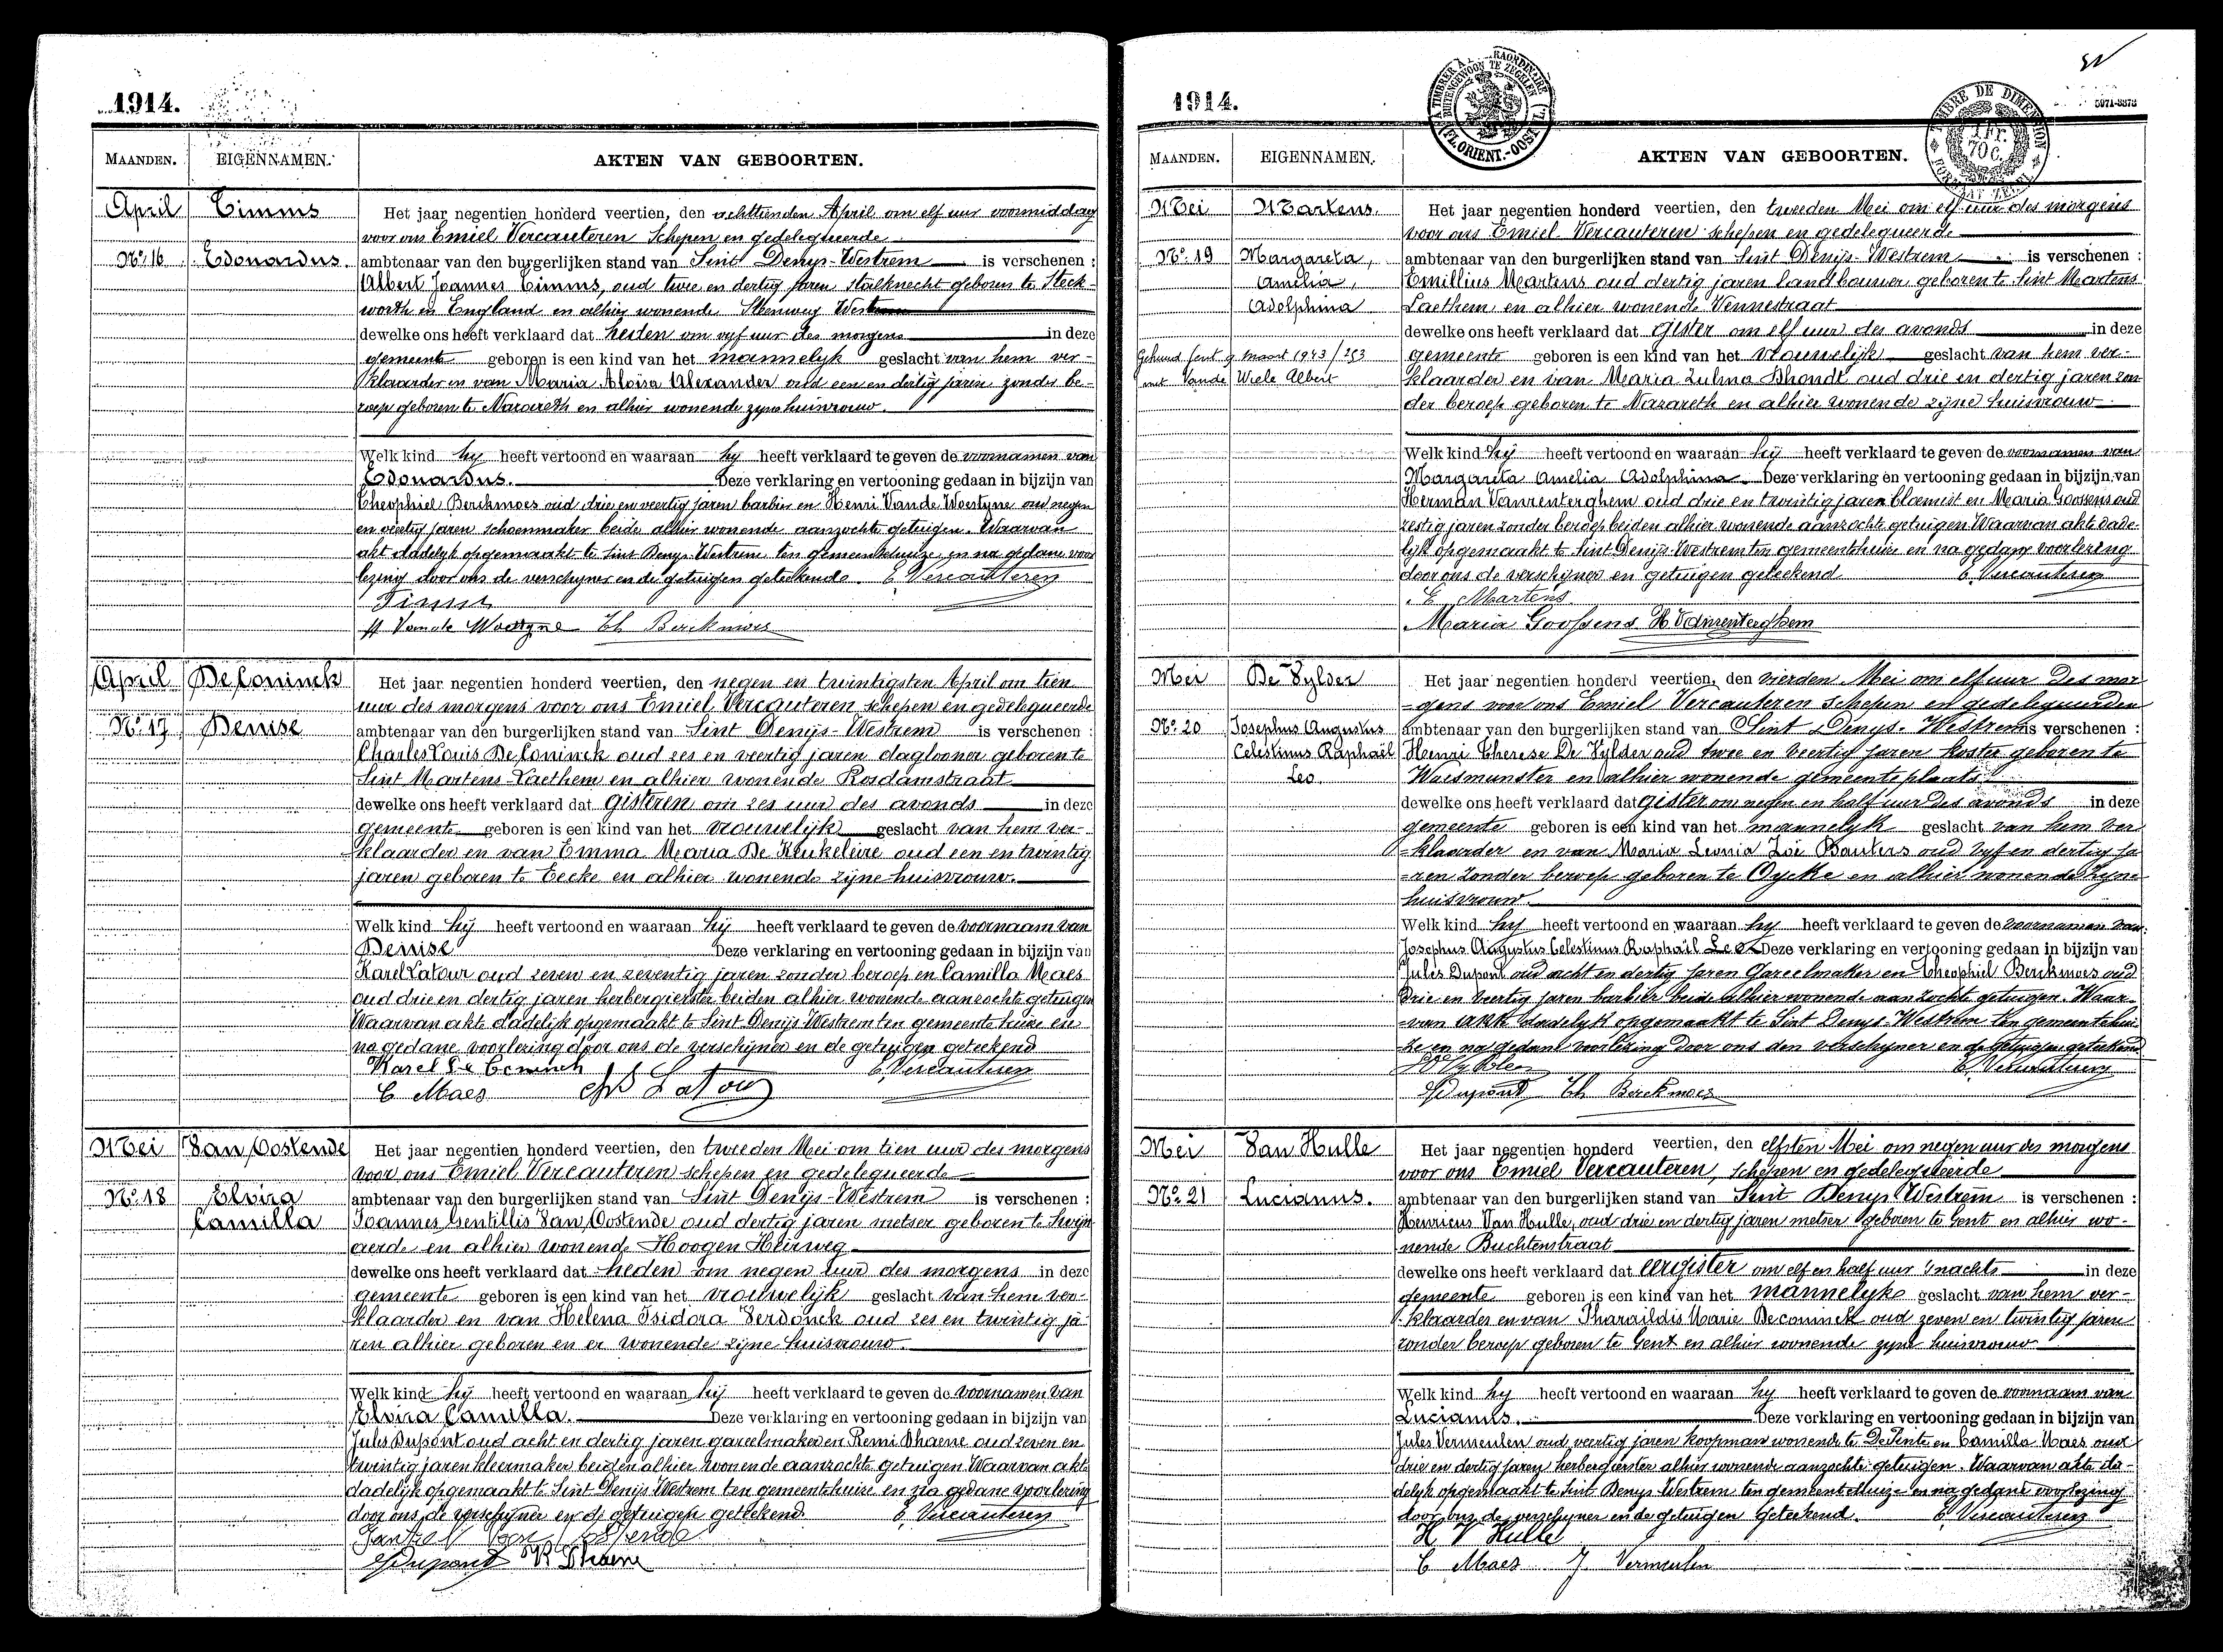 1914.
MAANDEN. EIGENNAMEN. AKTEN VAN GEBOORTEN.
April Timms Het jaar negentien honderd veertien, den achttienden April om elf uur voormiddag
voor ons Emiel Vercauteren Schepen en gedelegueerde
No. 16 Edouardus. ambtenaar van den burgerlijken stand van Sint Denys-Westrem is verschenen :
Albert Joannes Timms, oud twee en dertig jaren stalknecht geboren te Steck-
worth in England en alhier wonende Steenweg Westrem
dewelke ons heeft verklaard dat heden om vyf uur des morgens in deze
gemeente geboren is een kind van het mannelyk geslacht van hem ver-
klaarder en van Maria Aloïsa Alexander oud een en dertig jaren zonder be-
roep geboren te Nazareth en alhier wonende zyne huisvrouw.
Welk kind hy heeft vertoond en waaraan hy heeft verklaard te geven de voornamen van
Edouardus. Deze verklaring en vertooning gedaan in bijzijn van
Theophiel Berckmoes oud drie en veertig jaren barbier en Henri Vande Woestyne oud negen
en veertig jaren schoenmaker beide alhier wonende aanzochte getuigen. Waarvan
akt dadelyk opgemaakt te Sint Denys-Westrem ten gemeentehuize en na gedane voor
lezing door ons de verschyner en de getuigen geteekend. E Vercauteren
Timms
H Van de Woestyne Th Berckmoes
April De Coninck Het jaar negentien honderd veertien, den negen en twintigsten April om tien
uur des morgens voor ons Emiel Vercauteren schepen en gedelegueerde
No. 17 Denise ambtenaar van den burgerlijken stand van Sint Denijs-Westrem is verschenen :
Charles Louis De Coninck oud zes en veertig jaren daglooner geboren te
Sint Martens-Laethem en alhier wonende Rosdamstraat
dewelke ons heeft verklaard dat gisteren om zes uur des avonds in deze
gemeente geboren is een kind van het vrouwelijk geslacht van hem ver-
klaarder en van Emma Maria De Keukeleire oud een en twintig
jaren geboren te Eecke en alhier wonende zijne huisvrouw.
Welk kind hij heeft vertoond en waaraan hij heeft verklaard te geven de voornaam van
Denise Deze verklaring en vertooning gedaan in bijzijn van
Karel Latour oud zeven en zeventig jaren zonder beroep en Camilla Maes
oud drie en dertig jaren herbergierster beiden alhier wonende aanzochte getuigen
Waarvan akte dadelijk opgemaakt te Sint Denijs Westrem ten gemeente huize en
na gedane voorlezing door ons de verschijner en de getuigen geteekend
Karel De Coninck E Vercauteren
C Maes Latour
Mei Van Oostende Het jaar negentien honderd veertien, den tweeden Mei om tien uur des morgens
voor ons Emiel Vercauteren schepen en gedelegueerde
No. 18 Elvira ambtenaar van den burgerlijken stand van Sint Denijs-Westrem is verschenen :
Camilla Joannes Gentillis Van Oostende oud dertig jaren metser geboren te Swijn
aerde en alhier wonende Hoogen Heirweg
dewelke ons heeft verklaard dat heden om negen uur des morgens in deze
gemeente geboren is een kind van het vrouwelijk geslacht van hem ver-
klaarder en van Helena Isidora Verdonck oud zes en twintig ja
ren alhier geboren en er wonende zijne huisvrouw.
Welk kind hij heeft vertoond en waaraan hij heeft verklaard te geven de voornamen van
Elvira Camilla. Deze verklaring en vertooning gedaan in bijzijn van
Jules Dupont oud acht en dertig jaren gareelmaker en Remi Dhaene oud zeven en
twintig jaren kleermaker beiden alhier wonende aanzochte getuigen. Waarvan akte
dadelijk opgemaakt te Sint Denijs Westrem ten gemeentehuize en na gedane voorlezing
door ons, de verschijner en de getuigen geteekend. E Vercauteren
Van Oostende
Dupont R Dhaene
1914.
A TIMBRER A L'EXTRAORDINAIRE
BUITENGEWOON TE ZEGELEN
FL. ORIENT.-OOST VL.
TIMBRE DE DIMENSION
1 Fr. 70 C.
FORMAAT ZEGEL
5971-8373
MAANDEN. EIGENNAMEN. AKTEN VAN GEBOORTEN.
Mei Martens. Het jaar negentien honderd veertien, den tweeden Mei om elf uur des morgens
voor ons Emiel Vercauteren schepen en gedelegueerde
No. 19 Margareta, ambtenaar van den burgerlijken stand van Sint Denijs-Westrem is verschenen :
Amelia, Emillius Martens oud dertig jaren landbouwer geboren te Sint Martens
Adolphina Laethem en alhier wonende Vennestraat
dewelke ons heeft verklaard dat gister om elf uur des avonds in deze
Gehuwd Gent 9 maart 1943/253 gemeente geboren is een kind van het vrouwelijk geslacht van hem ver-
met Vande Wiele Albert klaarder en van Maria Zulma Dhondt oud drie en dertig jaren zon
der beroep geboren te Nazareth en alhier wonende zijne huisvrouw
Welk kind hij heeft vertoond en waaraan hij heeft verklaard te geven de voornamen van
Margareta Amelia Adolphina. Deze verklaring en vertooning gedaan in bijzijn van
Herman Vanrenterghem oud drie en twintig jaren bloemist en Maria Goossens oud
zestig jaren zonder beroep beiden alhier wonende aanzochte getuigen Waarvan akte dade-
lijk opgemaakt te Sint Denijs-Westrem ten gemeentehuize en na gedane voorlezing
door ons de verschijner en getuigen geteekend E Vercauteren
E Martens
Maria Goossens H Vanrenterghem
Mei De Vylder Het jaar negentien honderd veertien, den vierden Mei om elf uur des mor
-gens voor ons Emiel Vercauteren Schepen en gedelegueerden
No. 20 Josephus Augustus ambtenaar van den burgerlijken stand van Sint Denys-Westrem is verschenen :
Celestinus Raphaël Henri Therese De Vylder oud twee en veertig jaren koster geboren te
Leo Waesmunster en alhier wonende gemeenteplaats
dewelke ons heeft verklaard dat gister om negen en half uur des avonds in deze
gemeente geboren is een kind van het mannelyk geslacht van hem ver
-klaarder en van Maria Leonia Zoë Bauters oud vyf en dertig ja
-ren zonder beroep geboren te Oycke en alhier wonende zyne
huisvrouw.
Welk kind hy heeft vertoond en waaraan hy heeft verklaard te geven de voornamen van
Josephus Augustus Celestinus Raphaël Leo Deze verklaring en vertooning gedaan in bijzijn van
Jules Dupont oud acht en dertig jaren Gareelmaker en Theophiel Berckmoes oud
drie en veertig jaren barbier beide alhier wonende aanzochte getuigen. Waar-
-van akte dadelyk opgemaakt te Sint Denys-Westrem ten gemeentehui-
ze en na gedane voorlezing door ons den verschyner en de getuigen geteekend
De Vylder E. Vercauteren
Dupont Th Berckmoes
Mei Van Hulle Het jaar negentien honderd veertien, den elfsten Mei om negen uur des morgens
voor ons Emiel Vercauteren, schepen en gedelegueerde
No. 21 Lucianus. ambtenaar van den burgerlijken stand van Sint Denys Westrem is verschenen :
Henricus Van Hulle, oud drie en dertig jaren metser geboren te Gent en alhier wo-
nende Buchtenstraat
dewelke ons heeft verklaard dat eergister om elf en half uur s'nachts in deze
gemeente geboren is een kind van het mannelyke geslacht van hem ver-
klaarder en van Pharaildis Marie Deconinck oud zeven en twintig jaren
zonder beroep geboren te Gent en alhier wonende zyne huisvrouw
Welk kind hy heeft vertoond en waaraan hy heeft verklaard te geven de voornaam van
Lucianus. Deze verklaring en vertooning gedaan in bijzijn van
Jules Vermeulen oud veertig jaren koopman wonende te De Pinte en Camilla Maes oud
drie en dertig jaren herbergierster alhier wonende aanzochte getuigen. Waarvan akte da-
delyk opgemaakt te Sint Denys Westrem ten gemeentehuize en na gedane voorlezing
door ons de verschyner en de getuigen geteekend. E Vercauteren
H V Hulle
C Maes J Vermeulen